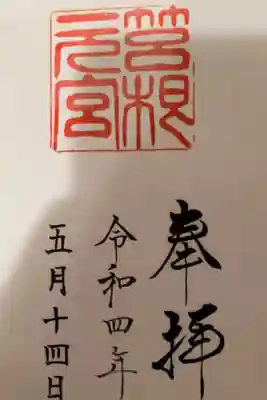 筥根
元宮
奉拝
令和四年
五月十四日